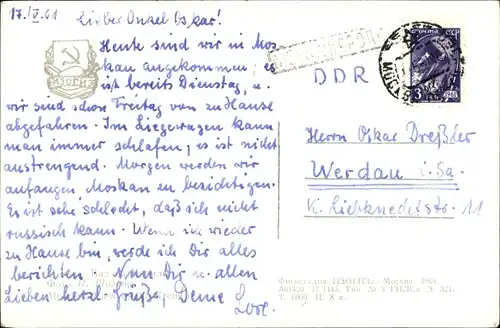 17./V.61
Lieber Onkel Oskar!
Heute sind wir in Mos-
kau angekommen, es
ist bereits Dienstag, u.
wir sind schon Freitag von zu Hause
abgefahren. Im Liegewagen kann
man immer schlafen, es ist nicht
anstrengend. Morgen werden wir
anfangen Moskau zu besichtigen.
Es ist sehr schlecht, daß ich nicht
russisch kann. Wenn ich wieder
zu Hause bin, werde ich Dir alles
berichten. Nun Dir u. allen
Lieben herzl. Grüße, Deine
Lore.
ИЗОГИЗ
ПОЧТА СССР
3
DDR
Herrn Oskar Dreßler
Werdau i. Sa.
K. Liebknechtstr. 11
ИЗОГИЗ. Москва 1961